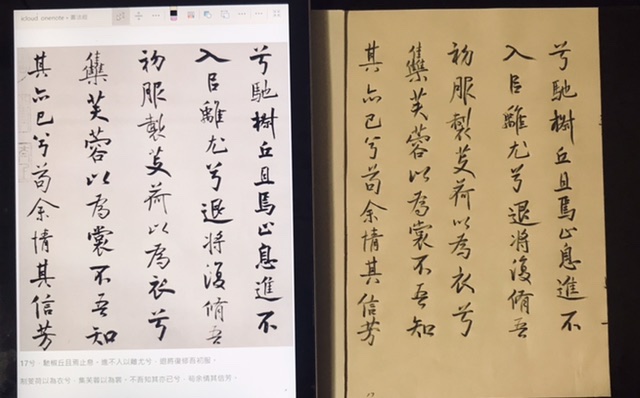 icloud onenote
兮馳樹丘且焉止息進不
入㠯離尤兮退將復脩吾
初服製芰荷以為衣兮
集芙蓉以為裳不吾知
其亦已兮苟余情其信芳
17兮，馳椒丘且焉止息。進不入以離尤兮，退將復修吾初服。
制芰荷以為衣兮，集芙蓉以為裳。不吾知其亦已兮，苟余情其信芳。
兮馳樹丘且焉止息進不
入㠯離尤兮退將復脩吾
初服製芰荷以為衣兮
集芙蓉以為裳不吾知
其亦已兮苟余情其信芳